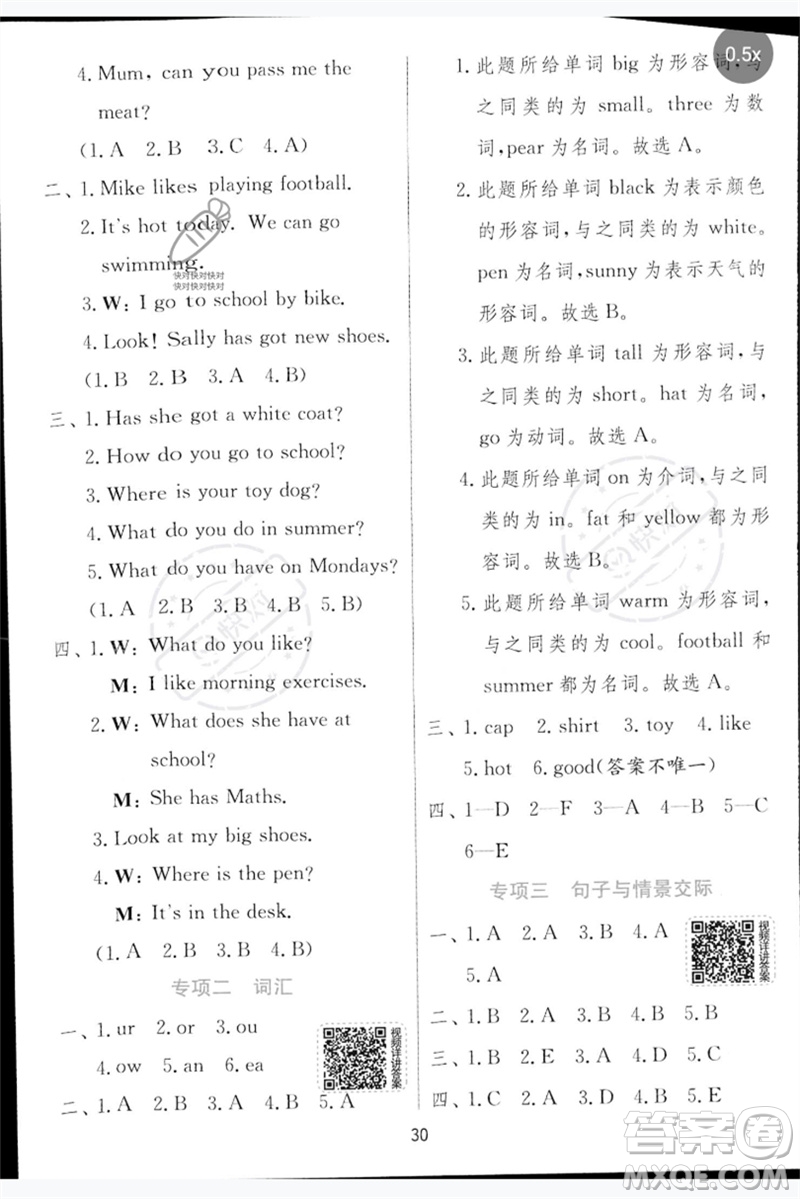 4. Mum, can you pass me the
meat?
(1. A 2. B 3. C 4. A)
二、1. Mike likes playing football.
2. It's hot today. We can go
swimming.
快对快对快对
快对快对快对
3. W: I go to school by bike.
4. Look! Sally has got new shoes.
(1. B 2. B 3. A 4. B)
三、1. Has she got a white coat?
2. How do you go to school?
3. Where is your toy dog?
4. What do you do in summer?
5. What do you have on Mondays?
(1. A 2. B 3. A 4. B 5. B)
四、1. W: What do you like?
M: I like morning exercises.
2. W: What does she have at
school?
M: She has Maths.
3. Look at my big shoes.
4. W: Where is the pen?
M: It's in the desk.
(1. A 2. B 3. B 4. B)
专项二 词汇
一、1. ur 2. or 3. ou
4. ow 5. an 6. ea
视频详讲答案
二、1. A 2. B 3. A 4. B 5. A
0.5x
1. 此题所给单词 big 为形容词,与
之同类的为 small。three 为数
词,pear 为名词。故选 A。
2. 此题所给单词 black 为表示颜色
的形容词,与之同类的为 white。
pen 为名词,sunny 为表示天气的
形容词。故选 B。
3. 此题所给单词 tall 为形容词,与
之同类的为 short。hat 为名词,
go 为动词。故选 A。
4. 此题所给单词 on 为介词,与之同
类的为 in。fat 和 yellow 都为形
容词。故选 B。
5. 此题所给单词 warm 为形容词,
与之同类的为 cool。football 和
summer 都为名词。故选 A。
三、1. cap 2. shirt 3. toy 4. like
5. hot 6. good(答案不唯一)
四、1—D 2—F 3—A 4—B 5—C
6—E
专项三 句子与情景交际
一、1. A 2. A 3. B 4. A
5. A
视频详讲答案
二、1. B 2. A 3. B 4. B 5. A
三、1. B 2. E 3. A 4. D 5. C
四、1. C 2. A 3. D 4. B 5. E
30
答案圈
MXQE.COM